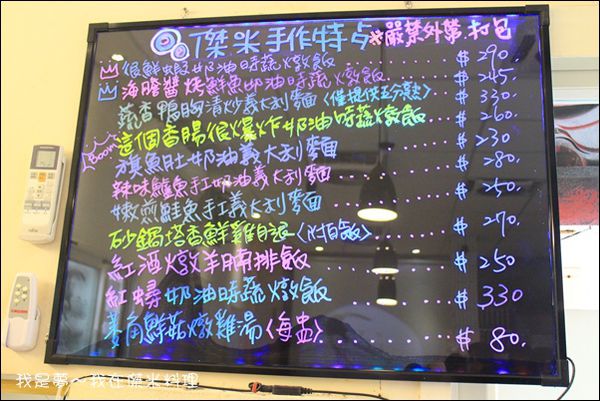 傑米手作特點 *嚴禁外帶.打包
很鮮蝦奶油時蔬燉飯......$290
海膽醬燒鮮魚奶油時蔬燉飯......$245.
蔬香鴨胸清炒義大利麵〈僅提供五分熟〉......$330.
Boom 這個香腸很爆炸奶油時蔬燉飯......$260.
旗魚肚奶油義大利麵......$230
辣味鱸魚手工奶油義大利麵......$280.
嫩煎鮭魚手工義大利麵......$250.
砂鍋塔香鮮雞〈附白飯〉......$270.
紅酒燉羊腩排飯......$250
紅蟳奶油時蔬燉飯......$330
菱角鮮菇燉雞湯〈每盅〉......$80.
我是夢~我在傑米料理